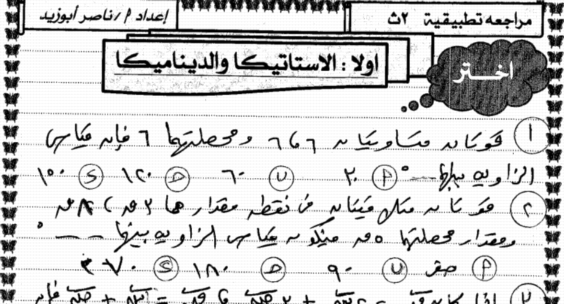 مراجعه تطبيقية ٢ث
إعداد م/ناصر أبوزيد
اختر
اولا : الاستاتيكا والديناميكا
١ قوتان متساويتان ٦ ، ٦ ومحصلتهما ٦ فإن قياس
الزاوية بينهما ...°  أ ٣٠  ب ٦٠  ج ١٢٠  د ١٥٠
٢ قوتان متلاقيتان فى نقطه مقدارهما ٣ ، ٨
ومقدار محصلتهما ٥ فيكون قياس الزاويه بينهما ـ ـ ـ °
أ صفر  ب ٩٠  ج ١٨٠  د ٢٧٠